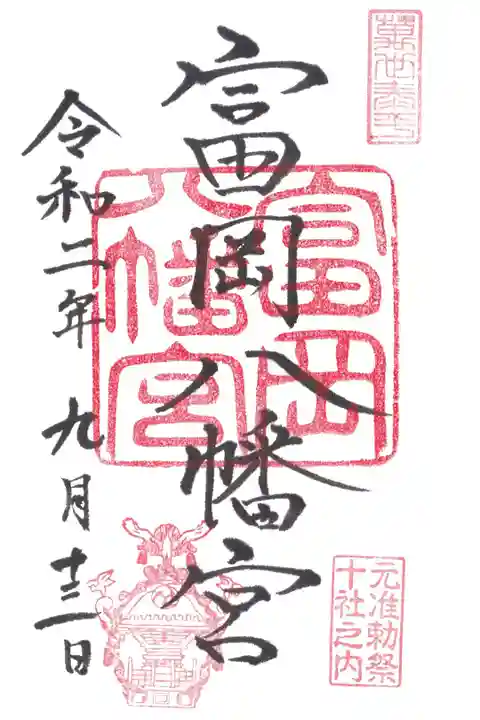 富岡八幡宮
令和二年 九月十三日
富岡
八幡宮
元准勅祭
十社之内